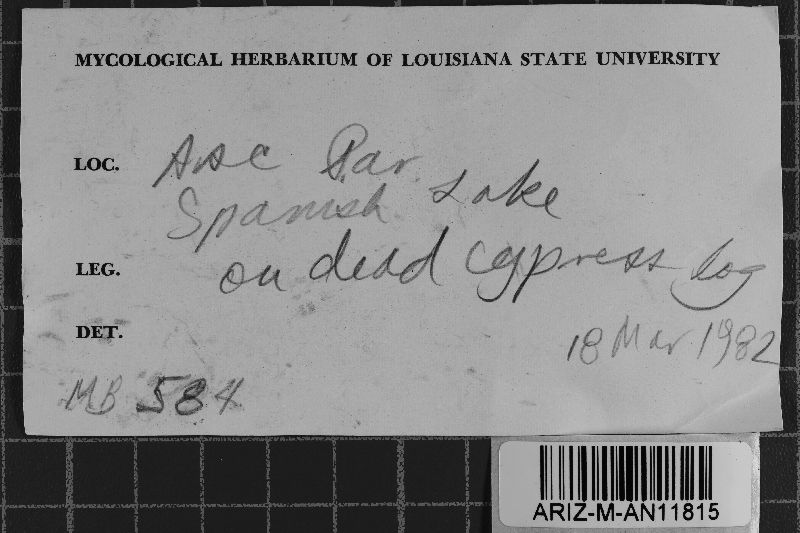 MYCOLOGICAL HERBARIUM OF LOUISIANA STATE UNIVERSITY
LOC. Asc Par.
Spanish Lake
LEG. on dead cypress log
DET.
18 Mar 1982
MB 584
ARIZ-M-AN11815